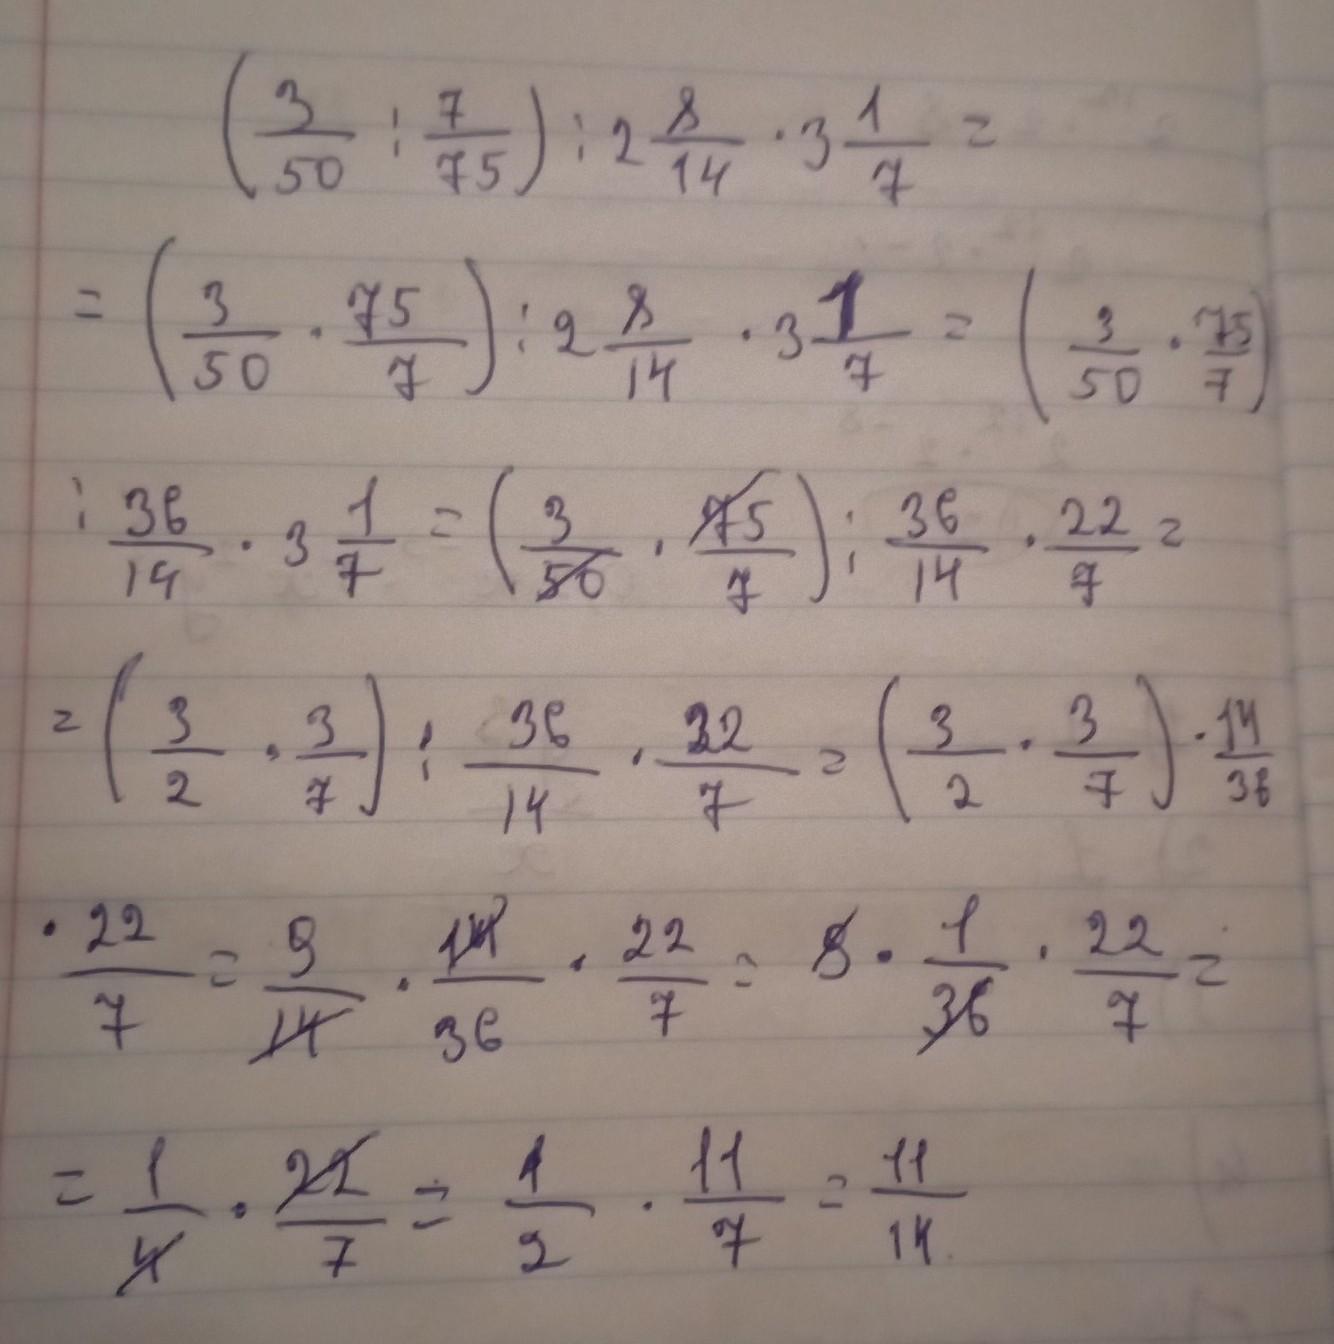 (3/50 : 7/75) : 2 8/14 · 3 1/7 =
= (3/50 · 75/7) : 2 8/14 · 3 1/7 = (3/50 · 75/7)
: 36/14 · 3 1/7 = (3/50 · 75/7) : 36/14 · 22/7 =
= (3/2 · 3/7) : 36/14 · 22/7 = (3/2 · 3/7) · 14/36
· 22/7 = 9/14 · 14/36 · 22/7 = 9 · 1/36 · 22/7 =
= 1/4 · 22/7 = 1/2 · 11/7 = 11/14